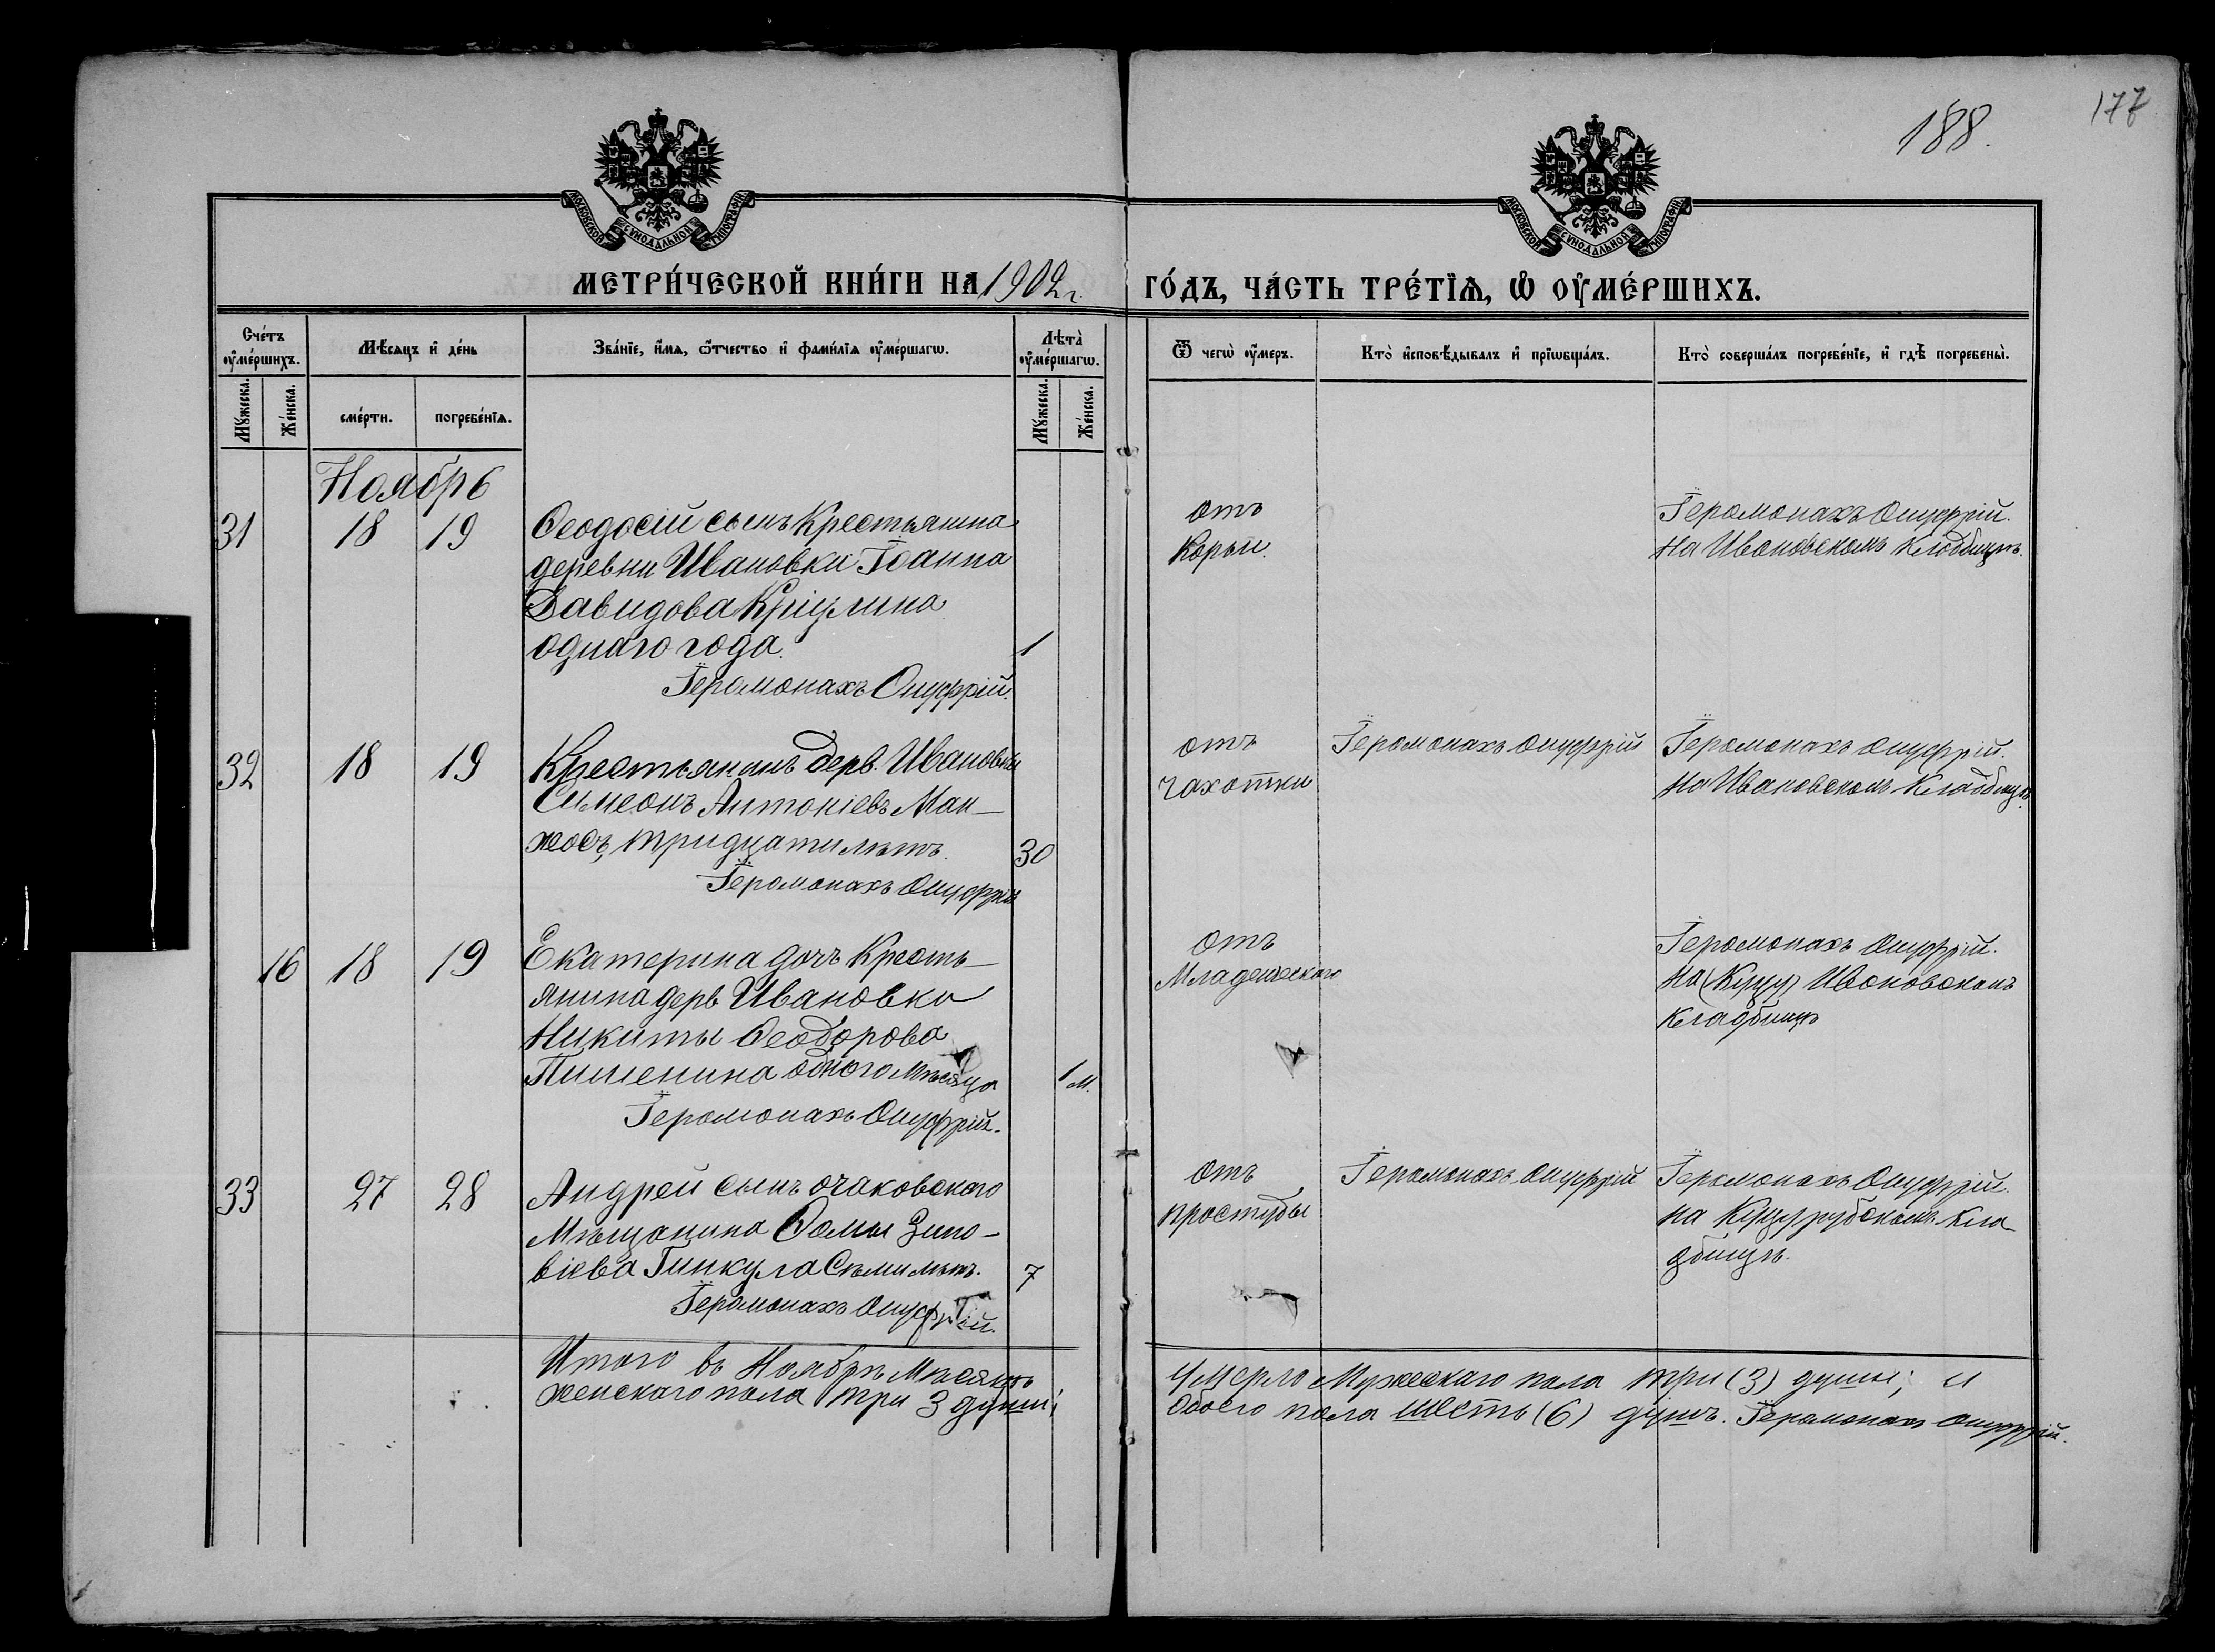 188.
177
МОСКОВСКОЙ СѴНОДАЛЬНОЙ ТИПОГРАФІИ
МОСКОВСКОЙ СѴНОДАЛЬНОЙ ТИПОГРАФІИ
МЕТРИ́ЧЕСКОЙ КНИ́ГИ НА 1902 г. ГО́ДЪ, ЧА́СТЬ ТРЕ́ТІѦ, Ѽ ОУ҆МЕ́РШИХЪ.
Сче́тъ оу҆ме́ршихъ.
Мꙋ́жеска.
Же́нска.
Мѣ́сѧцъ и҆ де́нь
сме́рти.
погребе́нїѧ.
Зва́нїе, и҆́мѧ, ѻ҆́тчество и҆ фами́лїѧ оу҆ме́ршагѡ.
Лѣ́та̀ оу҆ме́ршагѡ.
Мꙋ́жеска.
Же́нска.
Ѿ чегѡ̀ оу҆́меръ.
Кто̀ и҆сповѣ́дывалъ и҆ прїѡбща́лъ.
Кто̀ соверша́лъ погребе́нїе, и҆ гдѣ̀ погребены̀.
Ноябрь
31
18
19
Ѳеодосій сынъ Крестьянина
деревни Ивановки Іоанна
Давидова
однаго года.
1
Іеромонахъ Онуфрій.
отъ
Кори.
Іеромонахъ Онуфрій.
На Ивановскомъ кладбищѣ.
32
18
19
Крестьянинъ дерв. Ивановки
Симеонъ Антоніевъ Ман-
жосъ, тридцати лѣтъ.
30
Іеромонахъ Онуфрій
отъ
чахотки
Іеромонахъ Онуфрій
Іеромонахъ Онуфрій.
На Ивановскомъ Кладбищѣ.
16
18
19
Екатерина дочь Кресть-
янина дерв Ивановки
Никиты Ѳеодорова
Пименина одного мѣсяца
1 м.
Іеромонахъ Онуфрій.
отъ
Младенческаго
Іеромонахъ Онуфрій.
На Ивановскомъ
Кладбищѣ
33
27
28
Андрей сынъ очаковскаго
Мѣщанина Ѳомы Зино-
віева Гинкула Семи лѣтъ.
7
Іеромонахъ Онуфрій.
отъ
простуды
Іеромонахъ Онуфрій
Іеромонахъ Онуфрій.
на Куцурубскомъ Кла
дбищѣ.
Итого въ Ноябрѣ Мѣсяцѣ умерло Мужескаго пола три (3) души; и
женскаго пола три 3 души; Обоего пола шесть (6) душъ. Іеромонахъ Онуфрій.